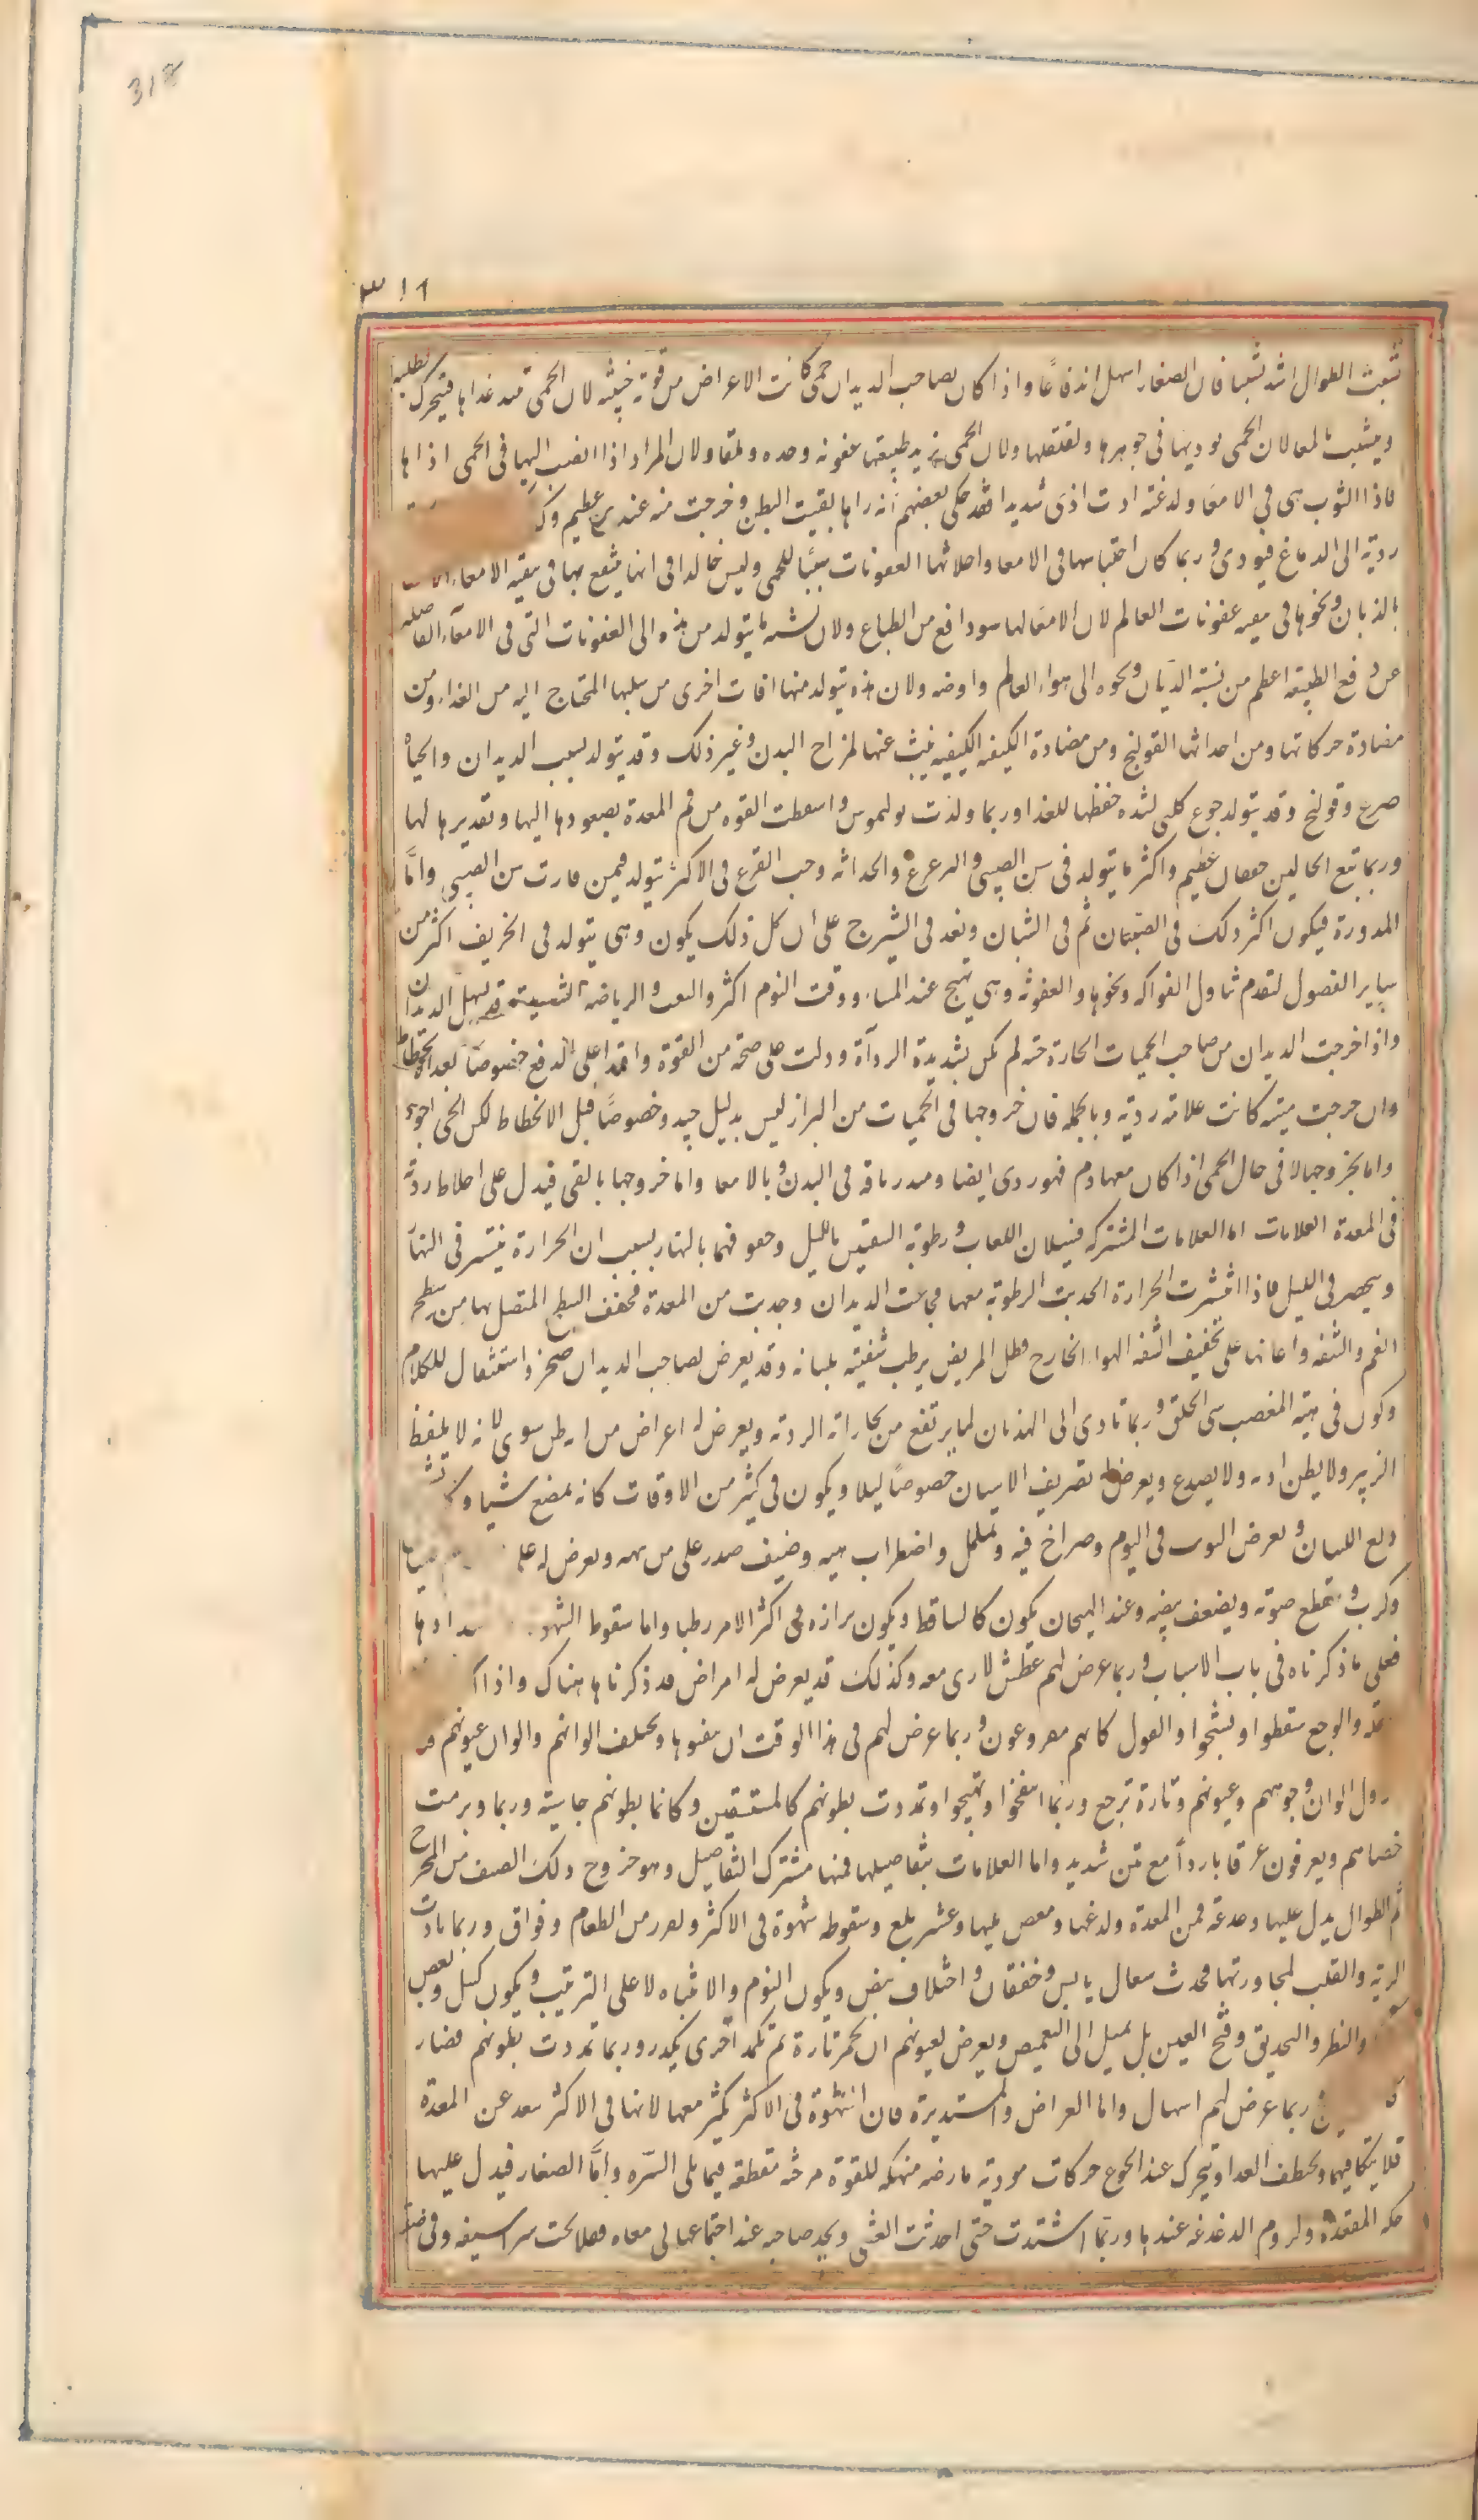 318
٣١٦
تشبث الطوال اشد تشبثا فان الصغار اسهل اندفاعًا واذا كان بصاحب الديدان حمى كانت الاعراض من قوية خبيثة لان الحمى تفسد غذاها فيتحرك لطلبه
ويتشبث بالمعا لان الحمى توذيها في جوهرها وتقلقلها ولان الحمى تزيد طبيعتها عفونه وحده ولقا ولان المرار اذا انصب اليها في الحمى اذاها
فاذا التوت هي في الامعا ولدغته ادت اذى شديدا فقد حكى بعضهم انه راها بقيت البطن وخرجت منه عند عظيم
ردية الى الدماغ فيوذى وربما كان احتباسها في الامعا واحداثها العفونات سببًا للحمى وليس حالها في انها ينتفع بها في بقية الامعاء
بالذبان ونحوها في عفونات العالم لان الامعا لها دافع من الطباع ولان ما يتولد من هذه الى العفونات التي في الامعآء الفاضله
عن دفع الطبيعة اعظم من نسبة الذبان ونحوه الى هواء العالم وارضه ولان هذه يتولد منها افات اخرى من سلبها المحتاج اليه من الغذاء ومن
مضادة حركاتها ومن احداثها القولنج ومن مضادة الكيفيه الكيفيه عنها لمزاج البدن وغير ذلك وقد يتولد بسبب الديدان والحيات
صرع وقولنج وقد يتولد جوع كلبي لشدة خطفها للغذا وربما ولدت بوليموس واسقطت القوه من فم المعدة بصعودها اليها وتقديرها لها
وربما تبع الحالين خفقان عظيم واكثر ما يتولد في سن الصبى والترعرع والحداثه وحب القرع في الاكثر يتولد فيمن فارق سن الصبى وامّا
المدورة فيكون اكثر ذلك في الصبيان ثم في الشبان وبعد في الشيوخ على ان كل ذلك يكون وهي يتولد في الخريف اكثر من
ساير الفصول لتقدم تناول الفواكه ونحوها والعفونه وهي تهيج عند المساء ووقت النوم اكثر والتعب والرياضه الشديدة قد يسهل الديدان
واذا خرجت الديدان من صاحب الحميات الحارة حيه لم يكن بشديدة الردآة ودلت على صحة من القوة واقتدار على الدفع خصوصًا بعد الانحطاط
وان خرجت ميتة كانت علامة ردية وبالجملة فان خروجها في الحميات من البراز ليس بدليل جيد وخصوصًا قبل الانحطاط لكن الحي اجود
واما خروجها لا في حال الحمى اذا كان معها دم فهو ردي ايضا ومنذر بافة في البدن وبالامعا واما خروجها بالقى فيدل على اخلاط ردية
في المعدة العلامات اما العلامات المشتركه فسيلان اللعاب ورطوبة الشفتين بالليل وجفوفهما بالنهار بسبب ان الحرارة ينتشر في النهار
وينحصر في الليل فاذا انتشرت الحرارة انجذبت الرطوبة معها فجاعت الديدان وجذبت من المعدة فجفف السطح المتصل بها من سطح
الفم والشفه واعانها على تجفيف الشفه الهوا الخارج فظل المريض يرطب شفتيه بلسانه وقد يعرض لصاحب الديدان ضجر واستثقال للكلام
ويكون في هيئة المغضب سي الخلق وربما تادى الى الهذيان لما يرتفع من بخاراته الرديه ويعرض له اعراض من سوى انه لا يلفظ
الزبير ولا يطن اذنه ولا يصدع ويعرض له تصريف الاسنان خصوصًا ليلا ويكون في كثير من الاوقات كانه يمضغ شيا
دلع اللسان ويعرض في النوم وصراخ فيه وتململ واضطراب هيه وضيق صدر على من ويعرض له على
وكرب وتقطع صوته ويضعف نبضه وعند الهيجان يكون كالساقط ويكون برازه في اكثر الامر رطبا واما سقوط
فعلى ما ذكرناه في باب الاسباب وربما عرض لهم عطش لا رى معه وكذلك قد يعرض له امراض قد ذكرناها هناك واذا
والوجع سقطوا وتشنجوا والتووا كانهم مصروعون وربما عرض لهم في هذا الوقت ان يتقيوها ويختلف الوانهم والوان عيونهم
الوان وجوههم وعيونهم وتارة ترجع وربما انتفخوا وتهيجوا وتمددت بطونهم كالمستسقين وكانما بطونهم جاسية وربما ورمت
خصاهم ويعرقون عرقا باردآ مع نتن شديد واما العلامات بتفاصيلها فمنها مشترك التفاصيل وهو خروج ذلك الصنف من المخرج
ثم الطوال يدل عليها دغدغة فم المعدة ولدغها ومغص يليها وعسر بلع وسقوط شهوة في الاكثر وتعزز من الطعام وفواق وربما تادت
الرية والقلب لمجاورتها فحدث سعال يابس وخفقان واختلاف نبض ويكون النوم والانتباه لا على الترتيب ويكون كسل وبغض
والنظر والتحديق وفتح العين بل يميل الى التغميض ويعرض لعيونهم ان تحمر تارة ثم تكمد اخرى وربما تمددت بطونهم فصار
ربما عرض لهم اسهال واما العراض والمستديرة فان الشهوة في الاكثر يكثر معها لانها في الاكثر تبعد عن المعدة
فلا ينكا فيها وتخطف الغذا ويتحرك عند الجوع حركات موذية قارضه منهكه للقوة مرخية مقطعة فيما يلي السّرة وامّا الصغار فيدل عليها
حكه المقعدة ولزوم الدغدغه عندها وربما اشتدت حتى احدثت الغشى ويجد صاحبه عند اجتماعها في معاه ثقلا تحت شراسيفه وفي